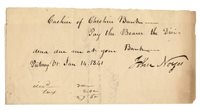 Cashier of Cheshire Bank
Pay the Bearer the Divi-
dend due me at your Bank
Putney Vt. Jan 14. 1841
John Noyes